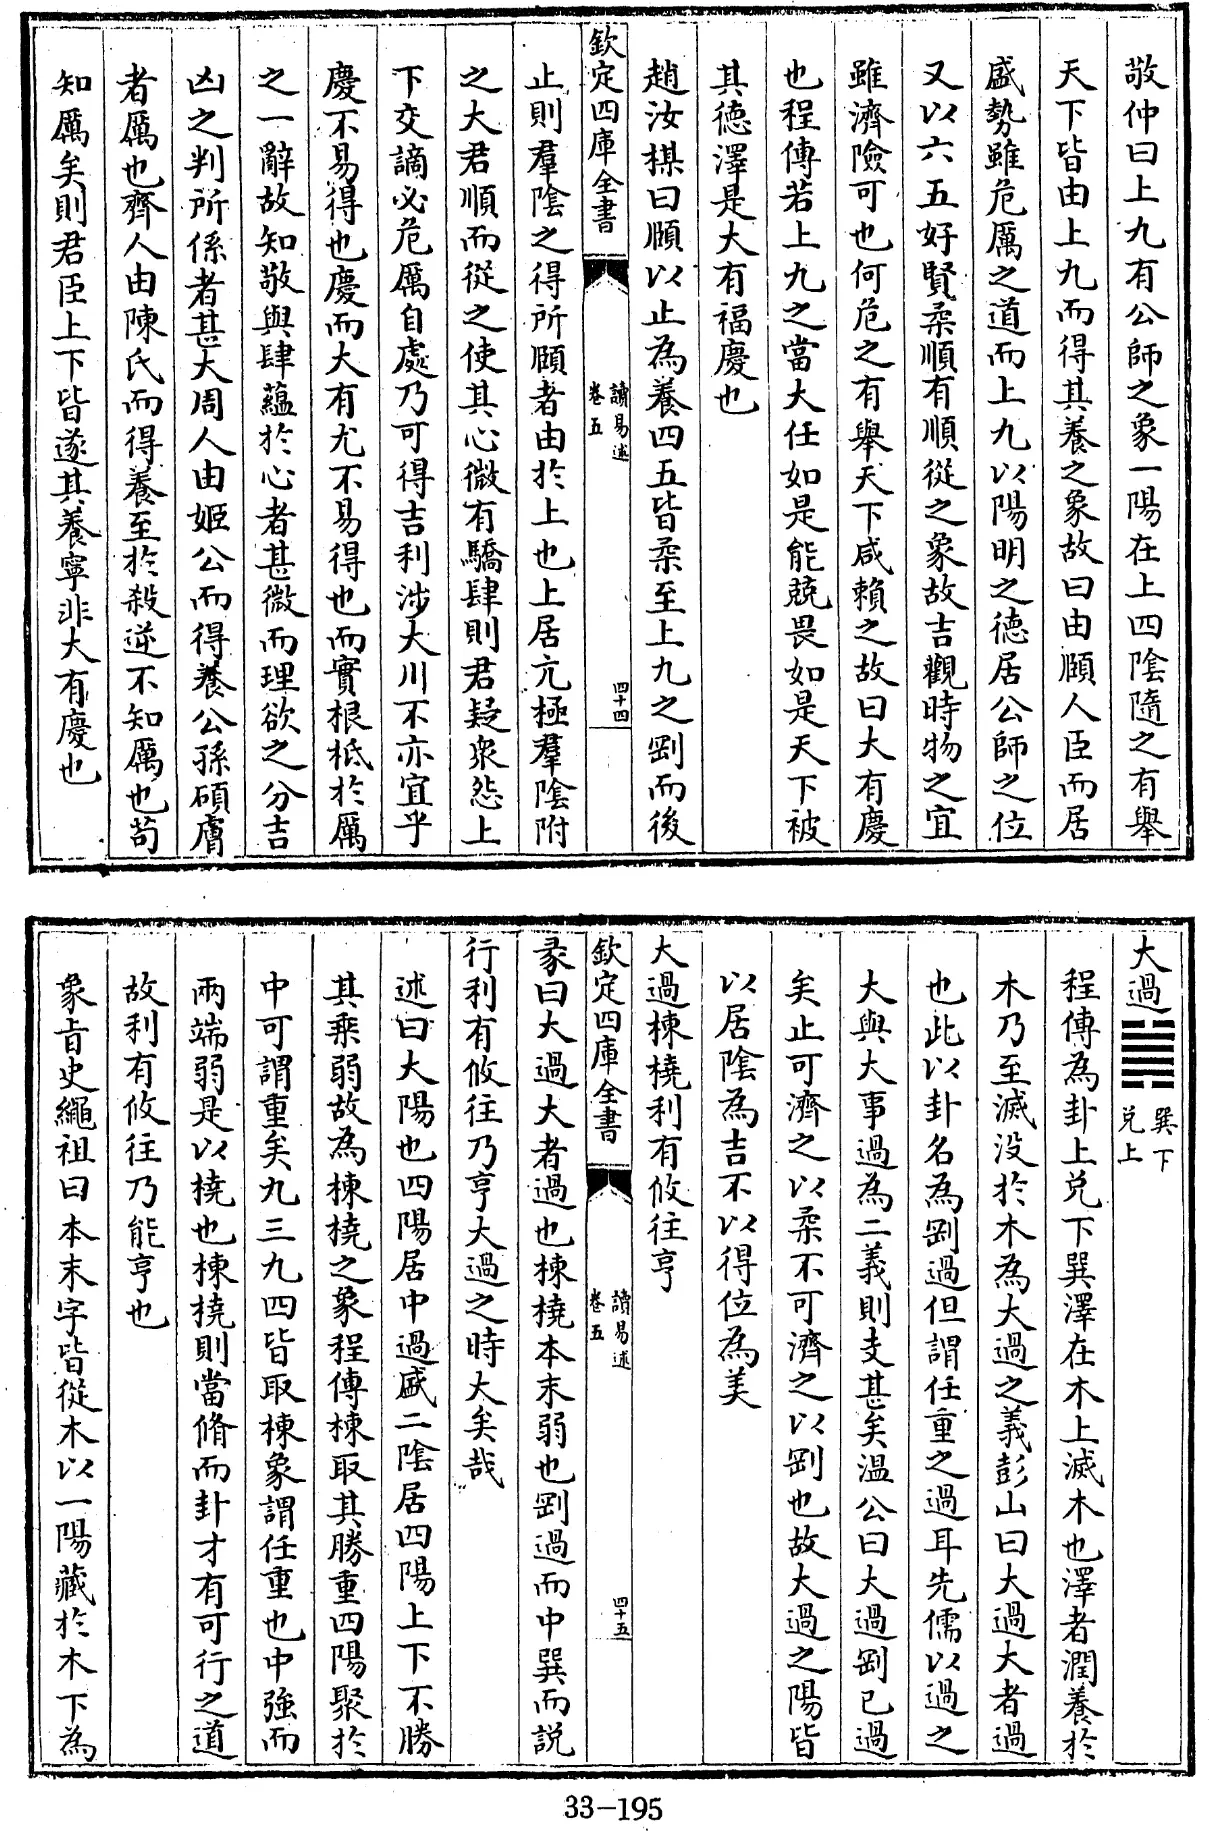 敬仲曰上九有公師之象一陽在上四陰隨之有舉
天下皆由上九而得其養之象故曰由頤人臣而居
盛勢雖危厲之道而上九以陽明之德居公師之位
又以六五好賢柔順有順從之象故吉觀時物之宜
雖濟險可也何危之有舉天下咸賴之故曰大有慶
也程傳若上九之當大任如是能兢畏如是天下被
其德澤是大有福慶也
趙汝楳曰頤以止為養四五皆柔至上九之剛而後
欽定四庫全書
讀易述
卷五
四十四
止則羣陰之得所頤者由於上也上居亢極羣陰附
之大君順而從之使其心微有驕肆則君疑衆怨上
下交謫必危厲自處乃可得吉利涉大川不亦宜乎
慶不易得也慶而大有尤不易得也而實根柢於厲
之一辭故知敬與肆蘊於心者甚微而理欲之分吉
凶之判所係者甚大周人由姬公而得養公孫碩膚
者厲也齊人由陳氏而得養至於殺逆不知厲也茍
知厲矣則君臣上下皆遂其養寧非大有慶也
大過䷛巽下
兌上
程傳為卦上兌下巽澤在木上滅木也澤者潤養於
木乃至滅沒於木為大過之義彭山曰大過大者過
也此以卦名為剛過但謂任重之過耳先儒以過之
大與大事過為二義則支甚矣溫公曰大過剛已過
矣止可濟之以柔不可濟之以剛也故大過之陽皆
以居陰為吉不以得位為美
大過棟橈利有攸往亨
欽定四庫全書
讀易述
卷五
四十五
彖曰大過大者過也棟橈本末弱也剛過而中巽而說
行利有攸往乃亨大過之時大矣哉
述曰大陽也四陽居中過盛二陰居四陽上下不勝
其乘弱故為棟橈之象程傳棟取其勝重四陽聚於
中可謂重矣九三九四皆取棟象謂任重也中強而
兩端弱是以橈也棟橈則當脩而卦才有可行之道
故利有攸往乃能亨也
象旨史繩祖曰本末字皆從木以一陽藏於木下為
33-195